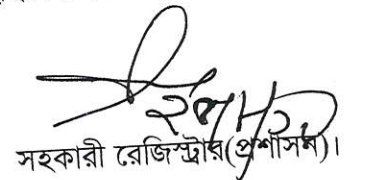 সহকারী রেজিস্ট্রার(প্রশাসন)।